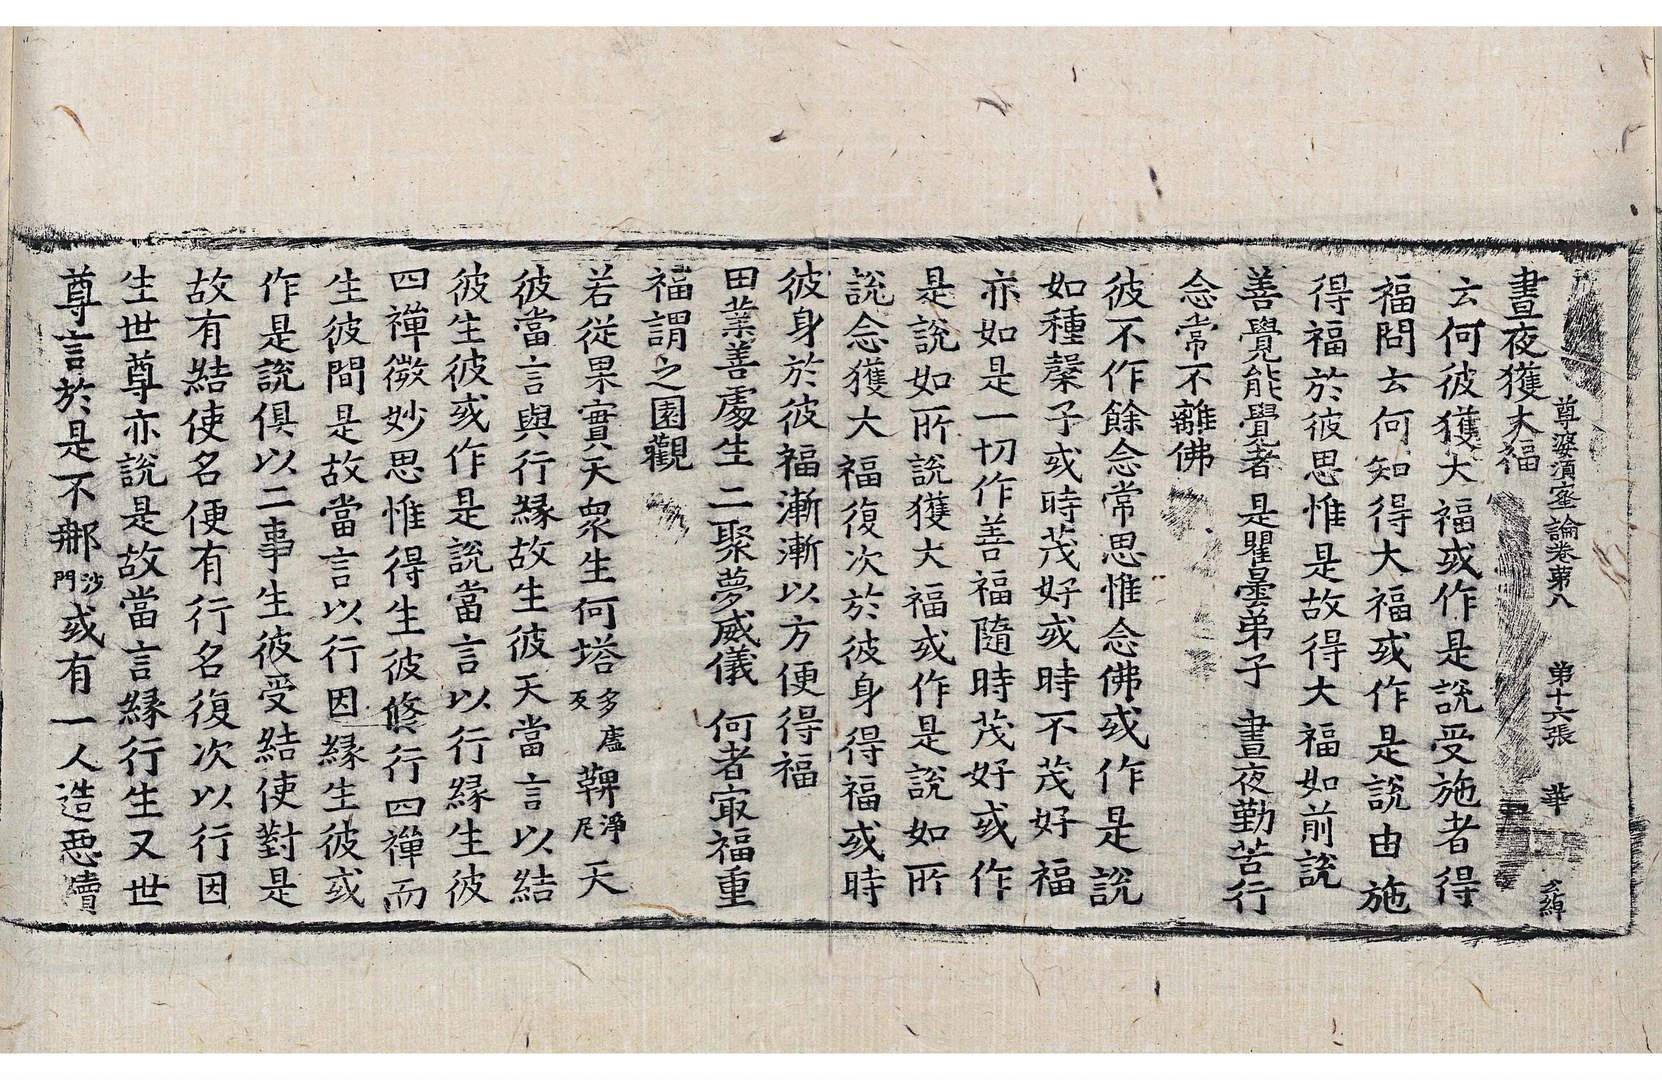 尊婆須蜜論卷第八 第十六張 華
晝夜獲大福
云何彼獲大福或作是說受施者得
福問云何知得大福或作是說由施
得福於彼思惟是故得大福如前說
善覺能覺者 是瞿曇弟子 晝夜勤苦行
念常不離佛
彼不作餘念常思惟念佛或作是說
如種㲉子或時茂好或時不茂好福
亦如是一切作善福隨時茂好或作
是說如所說獲大福或作是說如所
說念獲大福復次於彼身得福或時
彼身於彼福漸漸以方便得福
田業善處生 二聚夢威儀 何者㝡福重
福謂之園觀
若從果實天衆生何塔多廬反鞞淨尼天
彼當言與行緣故生彼天當言以結
彼生彼或作是說當言以行緣生彼
四禪微妙思惟得生彼修行四禪而
生彼間是故當言以行因緣生彼或
作是說俱以二事生彼受結使對是
故有結使名便有行名復次以行因
生世尊亦說是故當言緣行生又世
尊言於是不㴝沙門或有一人造惡瀆